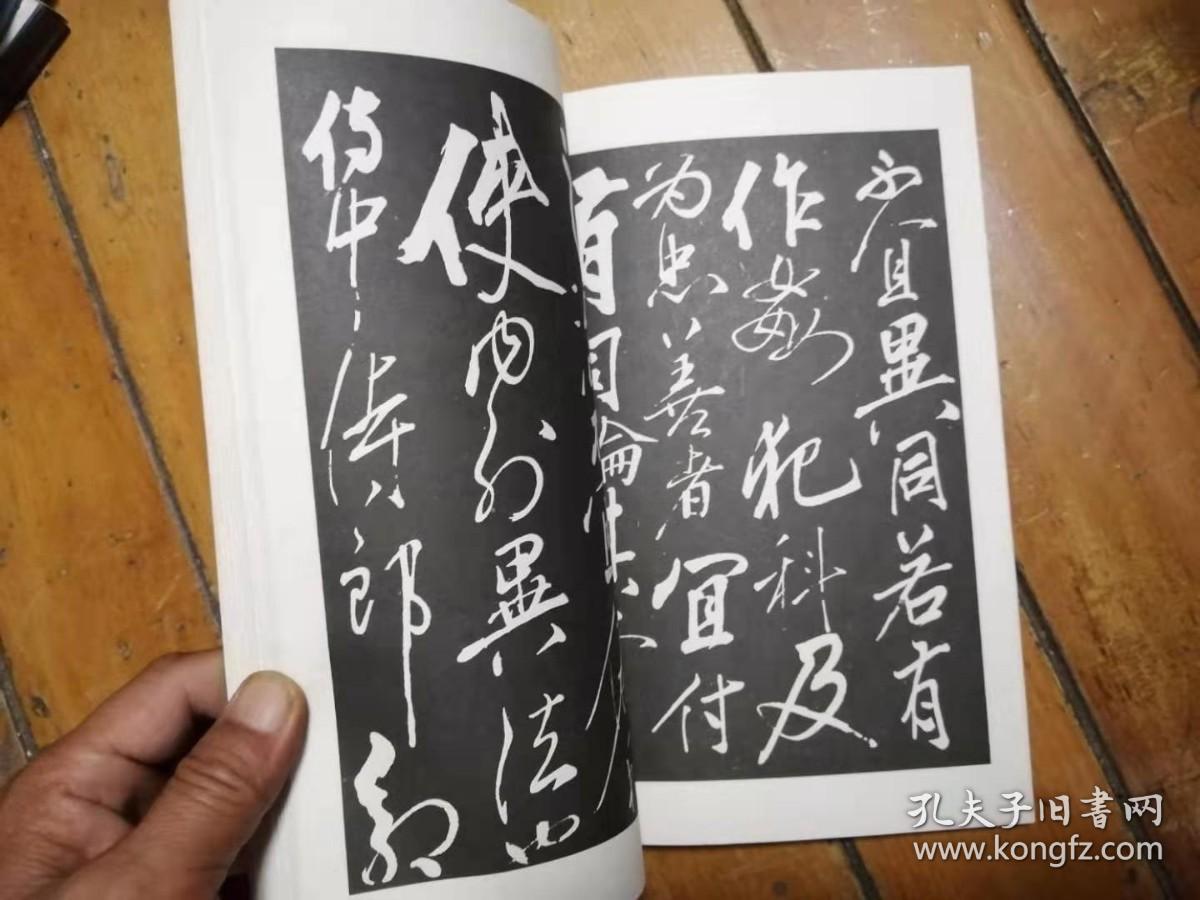 不宜異同若有
作姦犯科及
为忠善者宜付
有司論
使内外異法也
侍中侍郎郭
孔夫子旧書网
www.kongfz.com